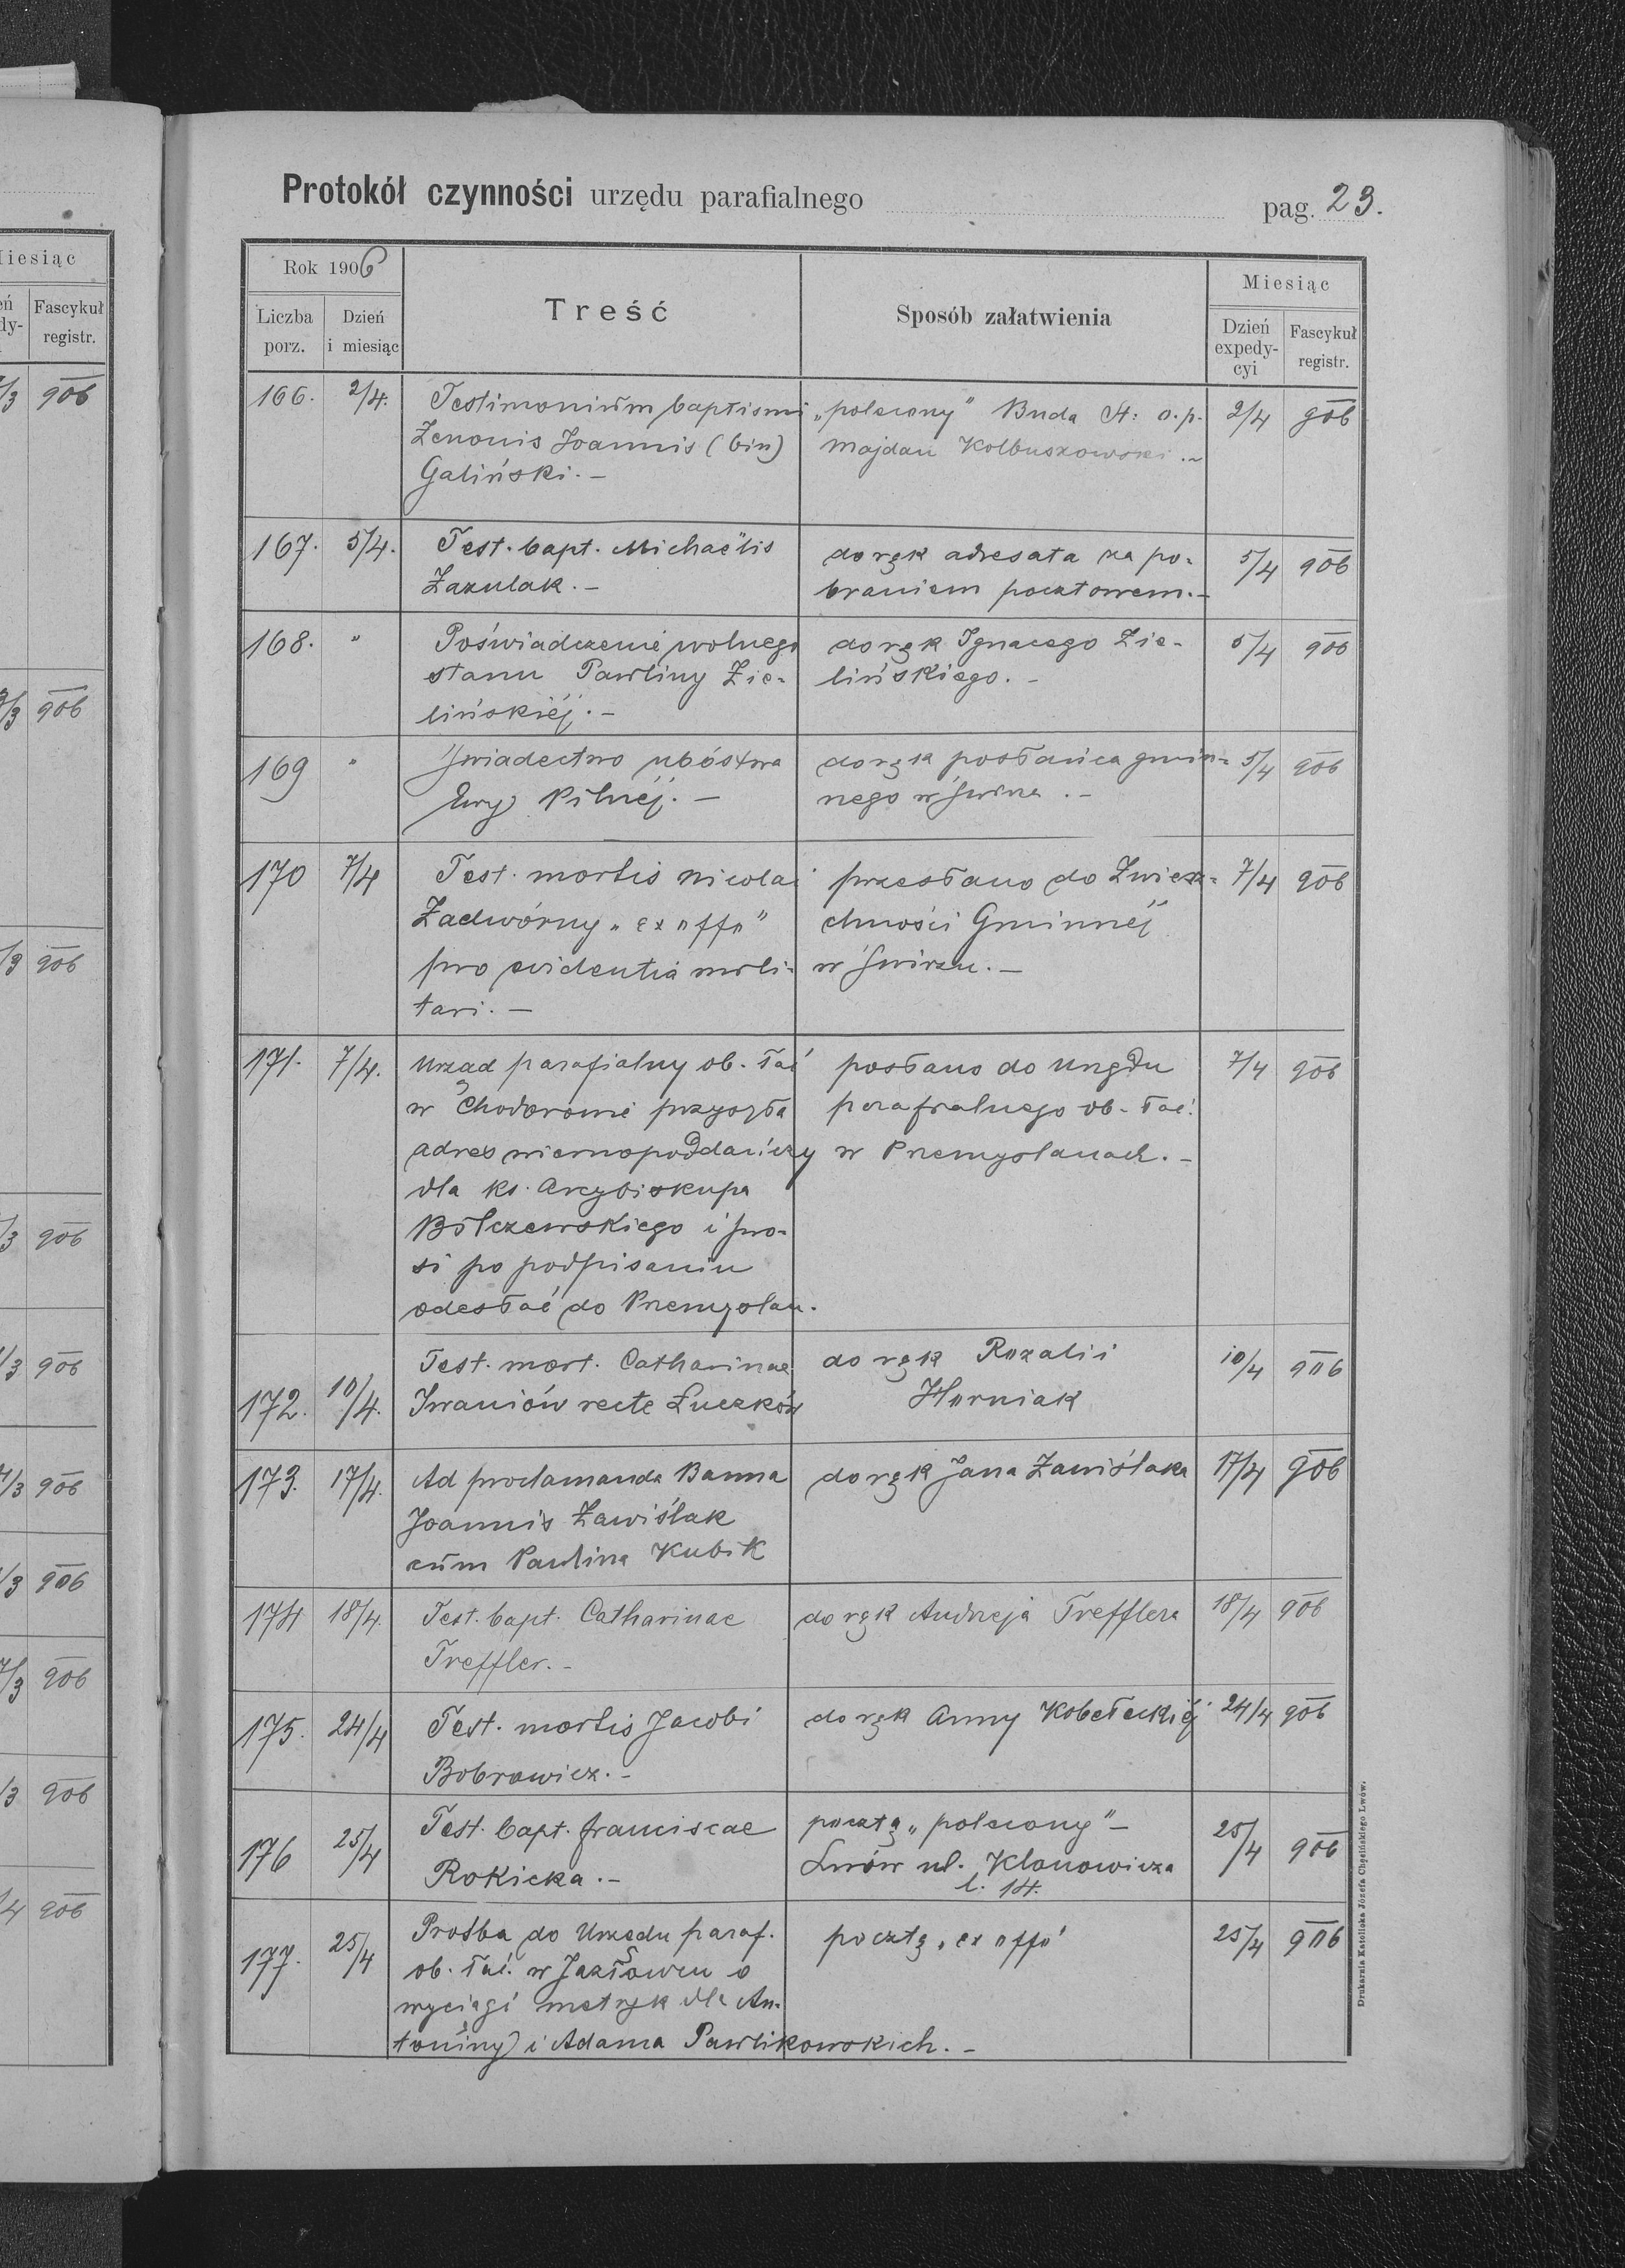 Protokół czynności urzędu parafialnego pag. 23.
Miesiąc
Fascykuł
registr.
Rok 1906
Liczba porz.
Dzień i miesiąc
Treść
Sposób załatwienia
Miesiąc
Dzień expedycyi
Fascykuł registr.
166. 2/4. Testimonium baptismi „polecony” Buda St: o.p. 2/4 906
Zenonis Joannis (bin) Majdan Kolbuszowski.~
Galiński.–
167. 5/4. Test. bapt. Michaëlis do rąk adresata za po- 5/4 906
Zazulak.– braniem pocztowem.–
168. " Poświadczenie wolnego do rąk Ignacego Zie- 5/4 906
stanu Pawliny Zie- lińskiego.–
lińskiéj.–
169 " Świadectwo ubóstwa do rąk posłańca gmin- 5/4 906
Ewy Pilnéj.– nego w Świrza.–
170 7/4 Test. mortis Nicolai przesłano do Zwierz- 7/4 906
Zadwórny „ex offo” chności Gminnéj
pro evidentia mili- w Świrzu.–
tari.–
171. 7/4. Urząd parafialny ob. łać posłano do Urzędu 7/4 906
w Chodorowie przysyła parafialnego ob. łać.
adres wiernopoddańczy w Przemyślanach.–
dla ks. Arcybiskupa
Bilczewskiego i pro-
si po podpisaniu
odesłać do Przemyślan.
Test. mort. Catharinae do rąk Rozalii 10/4 906
172. 10/4. Iwaniów recte Łuczków Horniak
173. 17/4. Ad proclamanda Banna do rąk Jana Zawiślaka 17/4 906
Joannis Zawiślak
cum Paulina Kubik
174 18/4. Test. bapt. Catharinae do rąk Andrzeja Trefflera 18/4 906
Treffler.–
175. 24/4 Test. mortis Jacobi do rąk Anny Kobełeckiéj 24/4 906
Bobrowicz.–
176 25/4 Test. bapt. Franciscae pocztą „polecony”– 25/4 906
Rokicka.– Lwów ul. Klonowicza
l. 14.
177. 25/4 Prośba do Urzędu paraf. pocztą „ex offo” 25/4 906
ob. łać. w Jazłowcu o
wyciągi metryk dla An-
toniny i Adama Pawlikowskich.–
Drukarnia Katolicka Józefa Chęcińskiego Lwów.